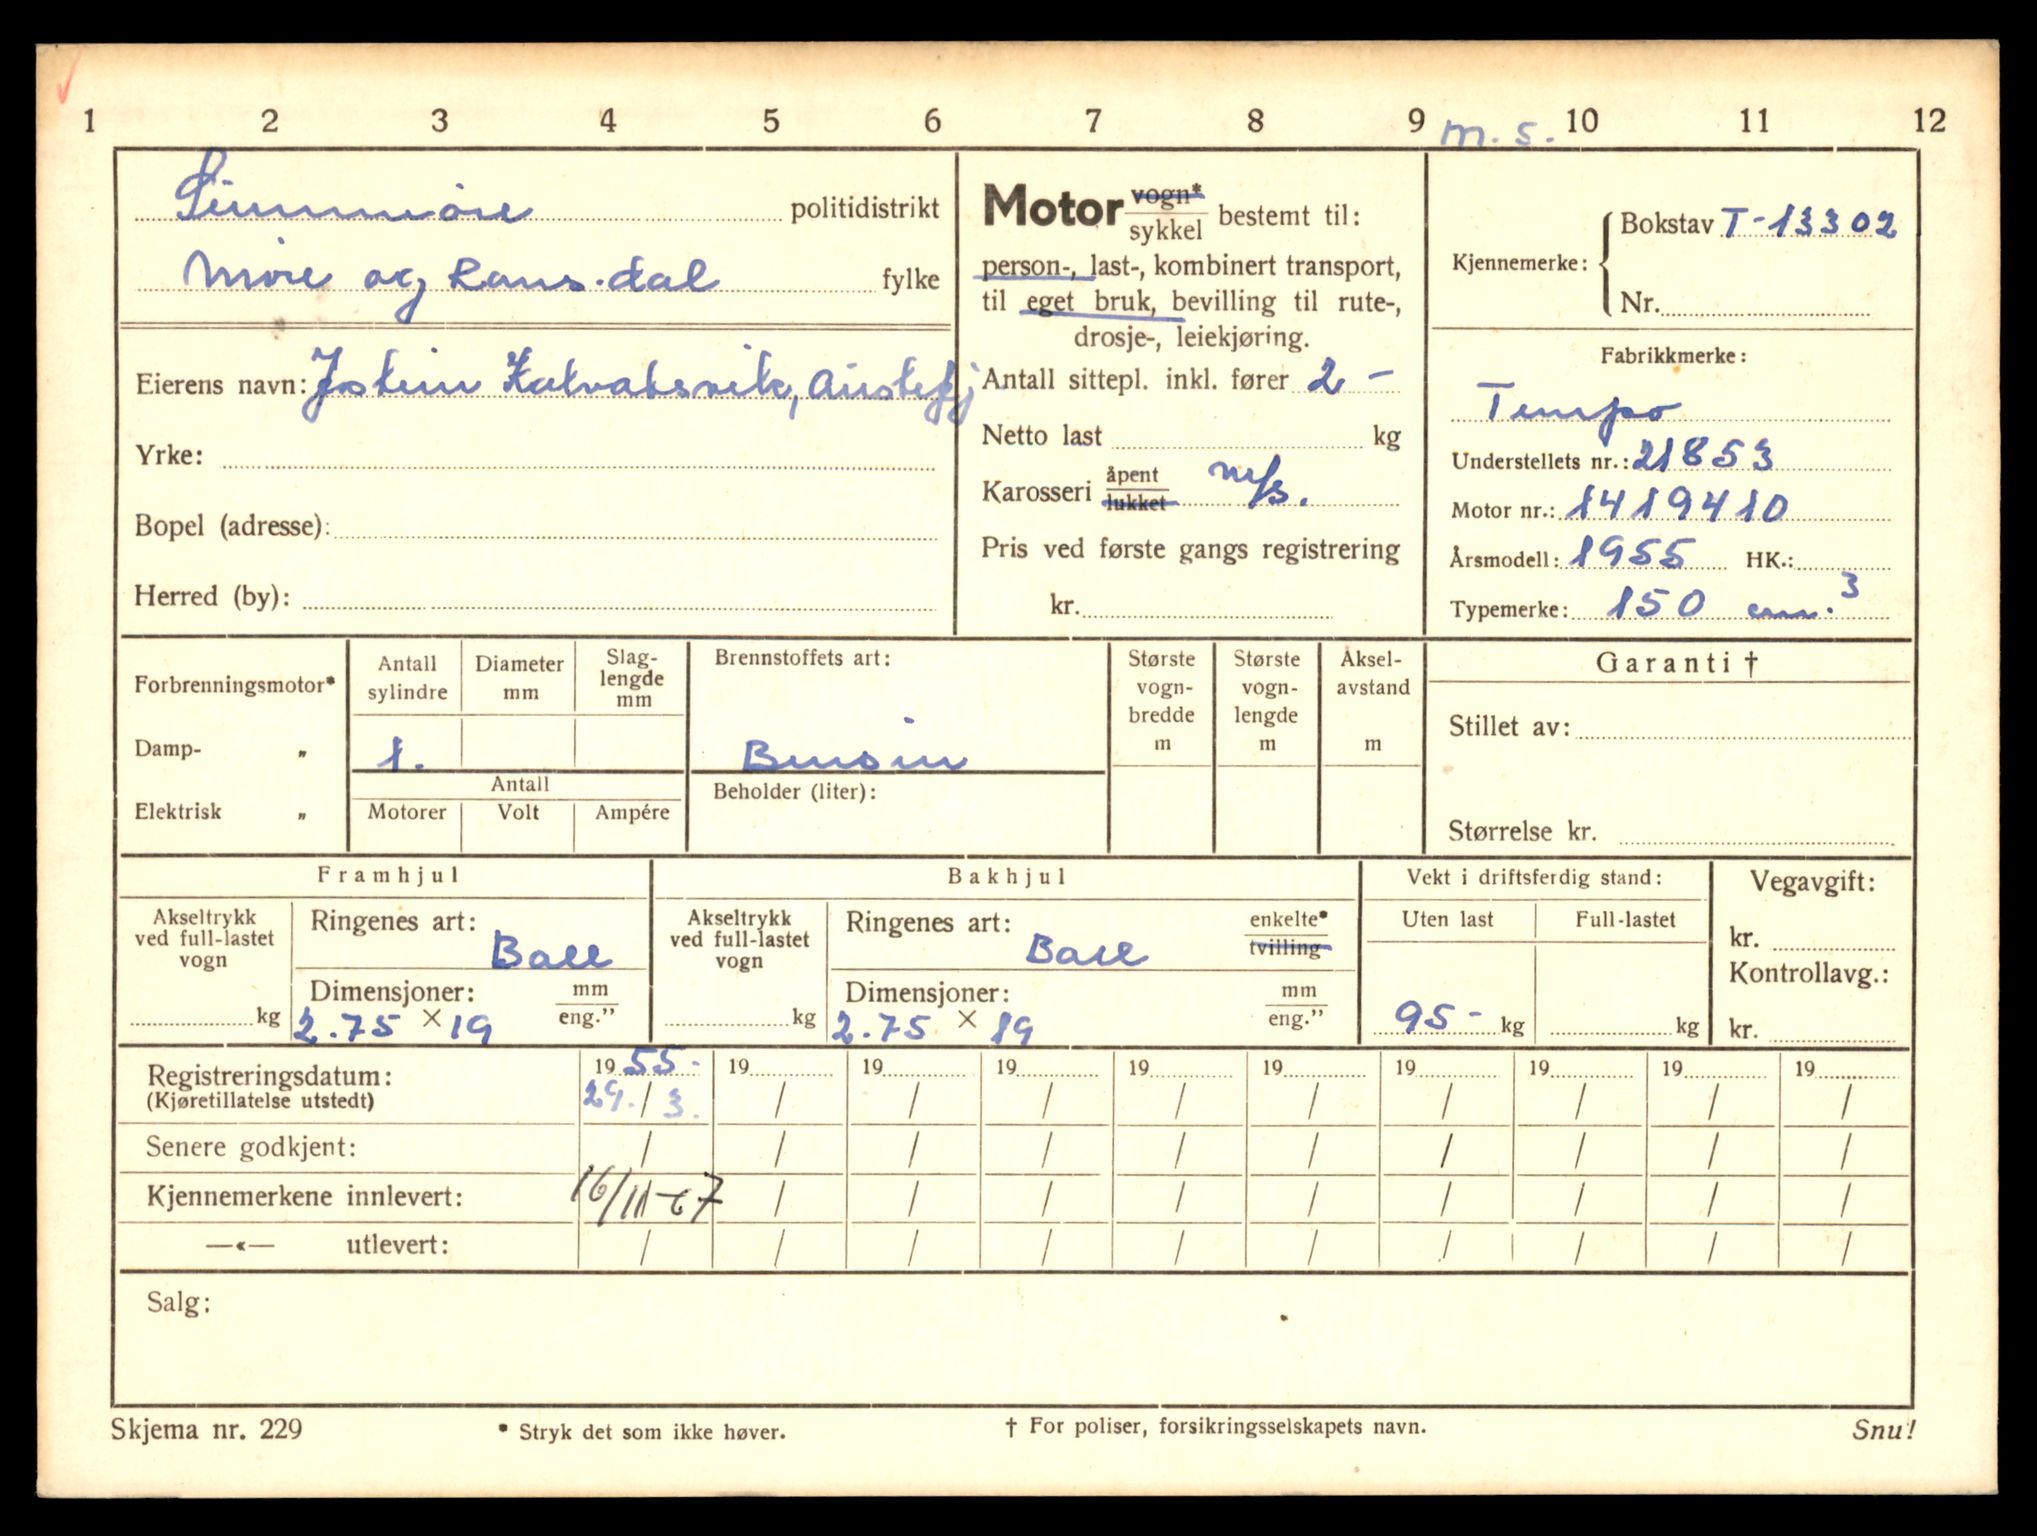 1 2 3 4 5 6 7 8 9 10 11 12
m. s.
Sunnmøre politidistrikt
Møre og Roms.dal fylke
Eierens navn: Jostein Kalvatsvik, Austefj
Yrke:
Bopel (adresse):
Herred (by):
Motor vogn* sykkel bestemt til:
person-, last-, kombinert transport,
til eget bruk, bevilling til rute-,
drosje-, leiekjøring.
Antall sittepl. inkl. fører 2 -
Netto last kg
Karosseri åpent lukket m/s.
Pris ved første gangs registrering
kr.
Kjennemerke: Bokstav T-13302
Nr.
Fabrikkmerke:
Tempo
Understellets nr.: 21853
Motor nr.: 1419410
Årsmodell: 1955 HK.:
Typemerke: 150 cm.3
Forbrenningsmotor*
Damp- „
Elektrisk „
Antall sylindre
1.
Diameter mm
Slag-
lengde
mm
Antall
Motorer Volt Ampére
Brennstoffets art:
Bensin
Beholder (liter):
Største
vogn-
bredde
m
Største
vogn-
lengde
m
Aksel-
avstand
m
Garanti †
Stillet av:
Størrelse kr.
Framhjul
Akseltrykk
ved full-lastet
vogn
kg
Ringenes art:
Ball
Dimensjoner: mm eng.”
2.75 × 19
Bakhjul
Akseltrykk
ved full-lastet
vogn
kg
Ringenes art: enkelte* tvilling
Ball
Dimensjoner: mm eng.”
2.75 × 19
Vekt i driftsferdig stand:
Uten last Full-lastet
95 - kg kg
Vegavgift:
kr.
Kontrollavg.:
kr.
Registreringsdatum: 19 55 - 19 19 19 19 19 19 19 19 19
(Kjøretillatelse utstedt) 29. / 3. / / / / / / / / /
Senere godkjent: / / / / / / / / / /
Kjennemerkene innlevert: 16/11-67 / / / / / / / / /
—«— utlevert: / / / / / / / / / /
Salg:
Skjema nr. 229 * Stryk det som ikke høver. † For poliser, forsikringsselskapets navn. Snu!